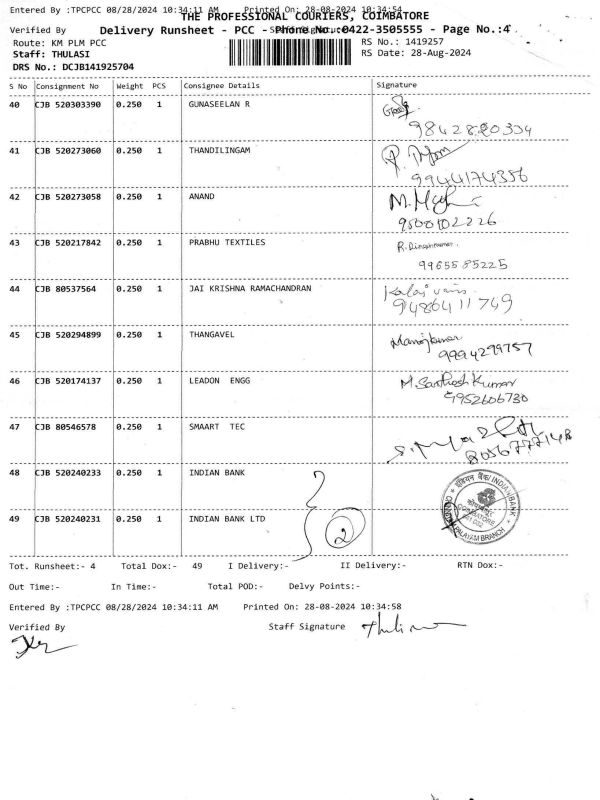 Entered By :TPCPCC 08/28/2024 10:34:11 AM Printed On: 28-08-2024 10:34:54
THE PROFESSIONAL COURIERS, COIMBATORE
Verified By Staff Signature
Delivery Runsheet - PCC - Phone No.:0422-3505555 - Page No.:4
Route: KM PLM PCC RS No.: 1419257
Staff: THULASI RS Date: 28-Aug-2024
DRS No.: DCJB141925704
S No Consignment No Weight PCS Consignee Details Signature
40 CJB 520303390 0.250 1 GUNASEELAN R
9842880334
41 CJB 520273060 0.250 1 THANDILINGAM
9944174356
42 CJB 520273058 0.250 1 ANAND
9500102226
43 CJB 520217842 0.250 1 PRABHU TEXTILES R. Dineshkumar.
9965585225
44 CJB 80537564 0.250 1 JAI KRISHNA RAMACHANDRAN Kalaivani
9486411749
45 CJB 520294899 0.250 1 THANGAVEL Manojkumar
9994299757
46 CJB 520174137 0.250 1 LEADON ENGG M. Santhosh Kumar
9952606730
47 CJB 80546578 0.250 1 SMAART TEC
8056777148
48 CJB 520240233 0.250 1 INDIAN BANK
49 CJB 520240231 0.250 1 INDIAN BANK LTD 2
इंडियन बैंक/INDIAN BANK
COIMBATORE
641 002
PALAYAM BRANCH
Tot. Runsheet:- 4 Total Dox:- 49 I Delivery:- II Delivery:- RTN Dox:-
Out Time:- In Time:- Total POD:- Delvy Points:-
Entered By :TPCPCC 08/28/2024 10:34:11 AM Printed On: 28-08-2024 10:34:58
Verified By Staff Signature